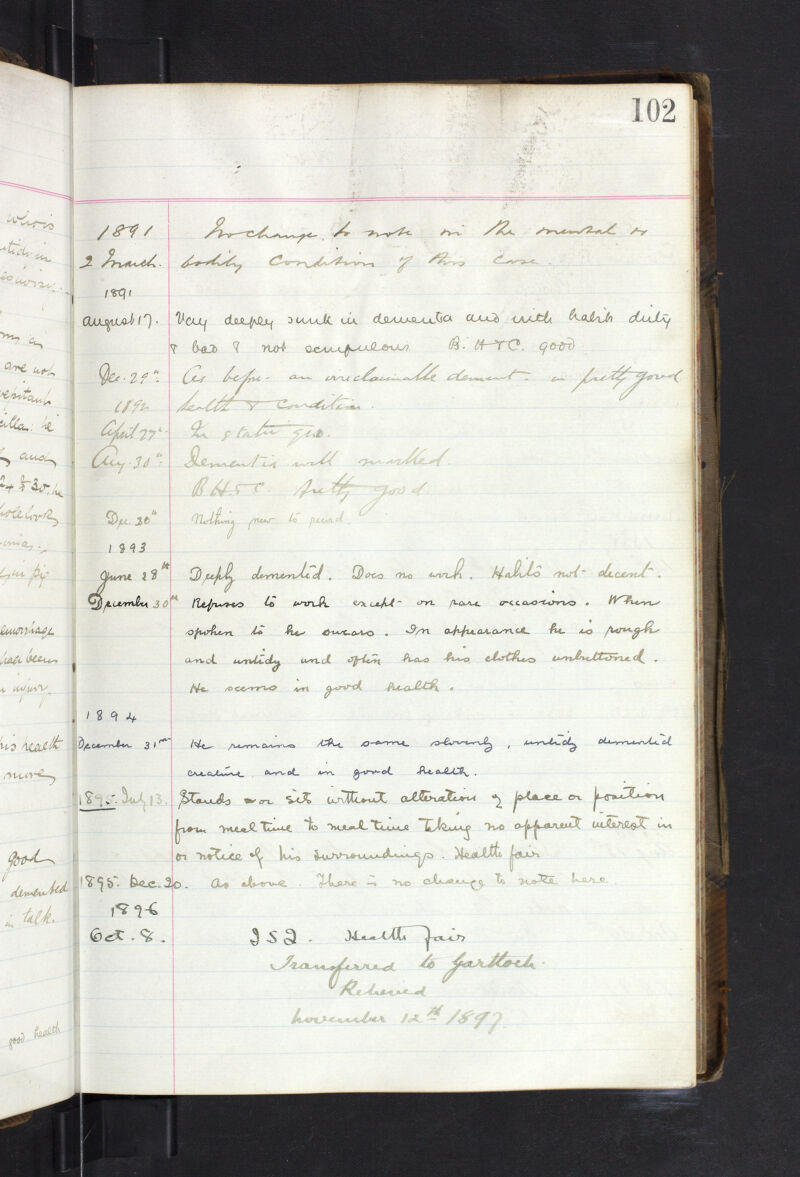 102
1891 No change to note in the mental or
2 March. bodily condition of this case.
1891
August 17. Very deeply sunk in dementia and with habits dirty
& bad & not scrupulous B. H & C. good
Dec. 29th As before an irreclaimable dement. in pretty good
1892 health & condition.
April 27th In statu quo.
Aug. 30th Dementia well marked.
B H & C. pretty good
Dec. 30th Nothing new to record.
1893
June 28th Deeply demented. Does no work. Habits not decent.
December 30th Refuses to work except on rare occasions. When
spoken to he swears. In appearance he is rough
and untidy and often has his clothes unbuttoned.
He seems in good health.
1894
December 31st He remains the same slovenly, untidy demented
creature, and in good health.
1895. July 13. Stands or sits without alteration of place or position
from meal time to meal time taking no apparent interest in
or notice of his surroundings. Health fair
1895. Dec. 20. As above. There is no change to note here
1896
Oct. 8. I S Q. Health fair
Transferred to Gartloch.
Relieved
November 12th 1897
who is
untidy in
are not
he
and
he
whole looks
his health
more
good
demented
in talk.
good health